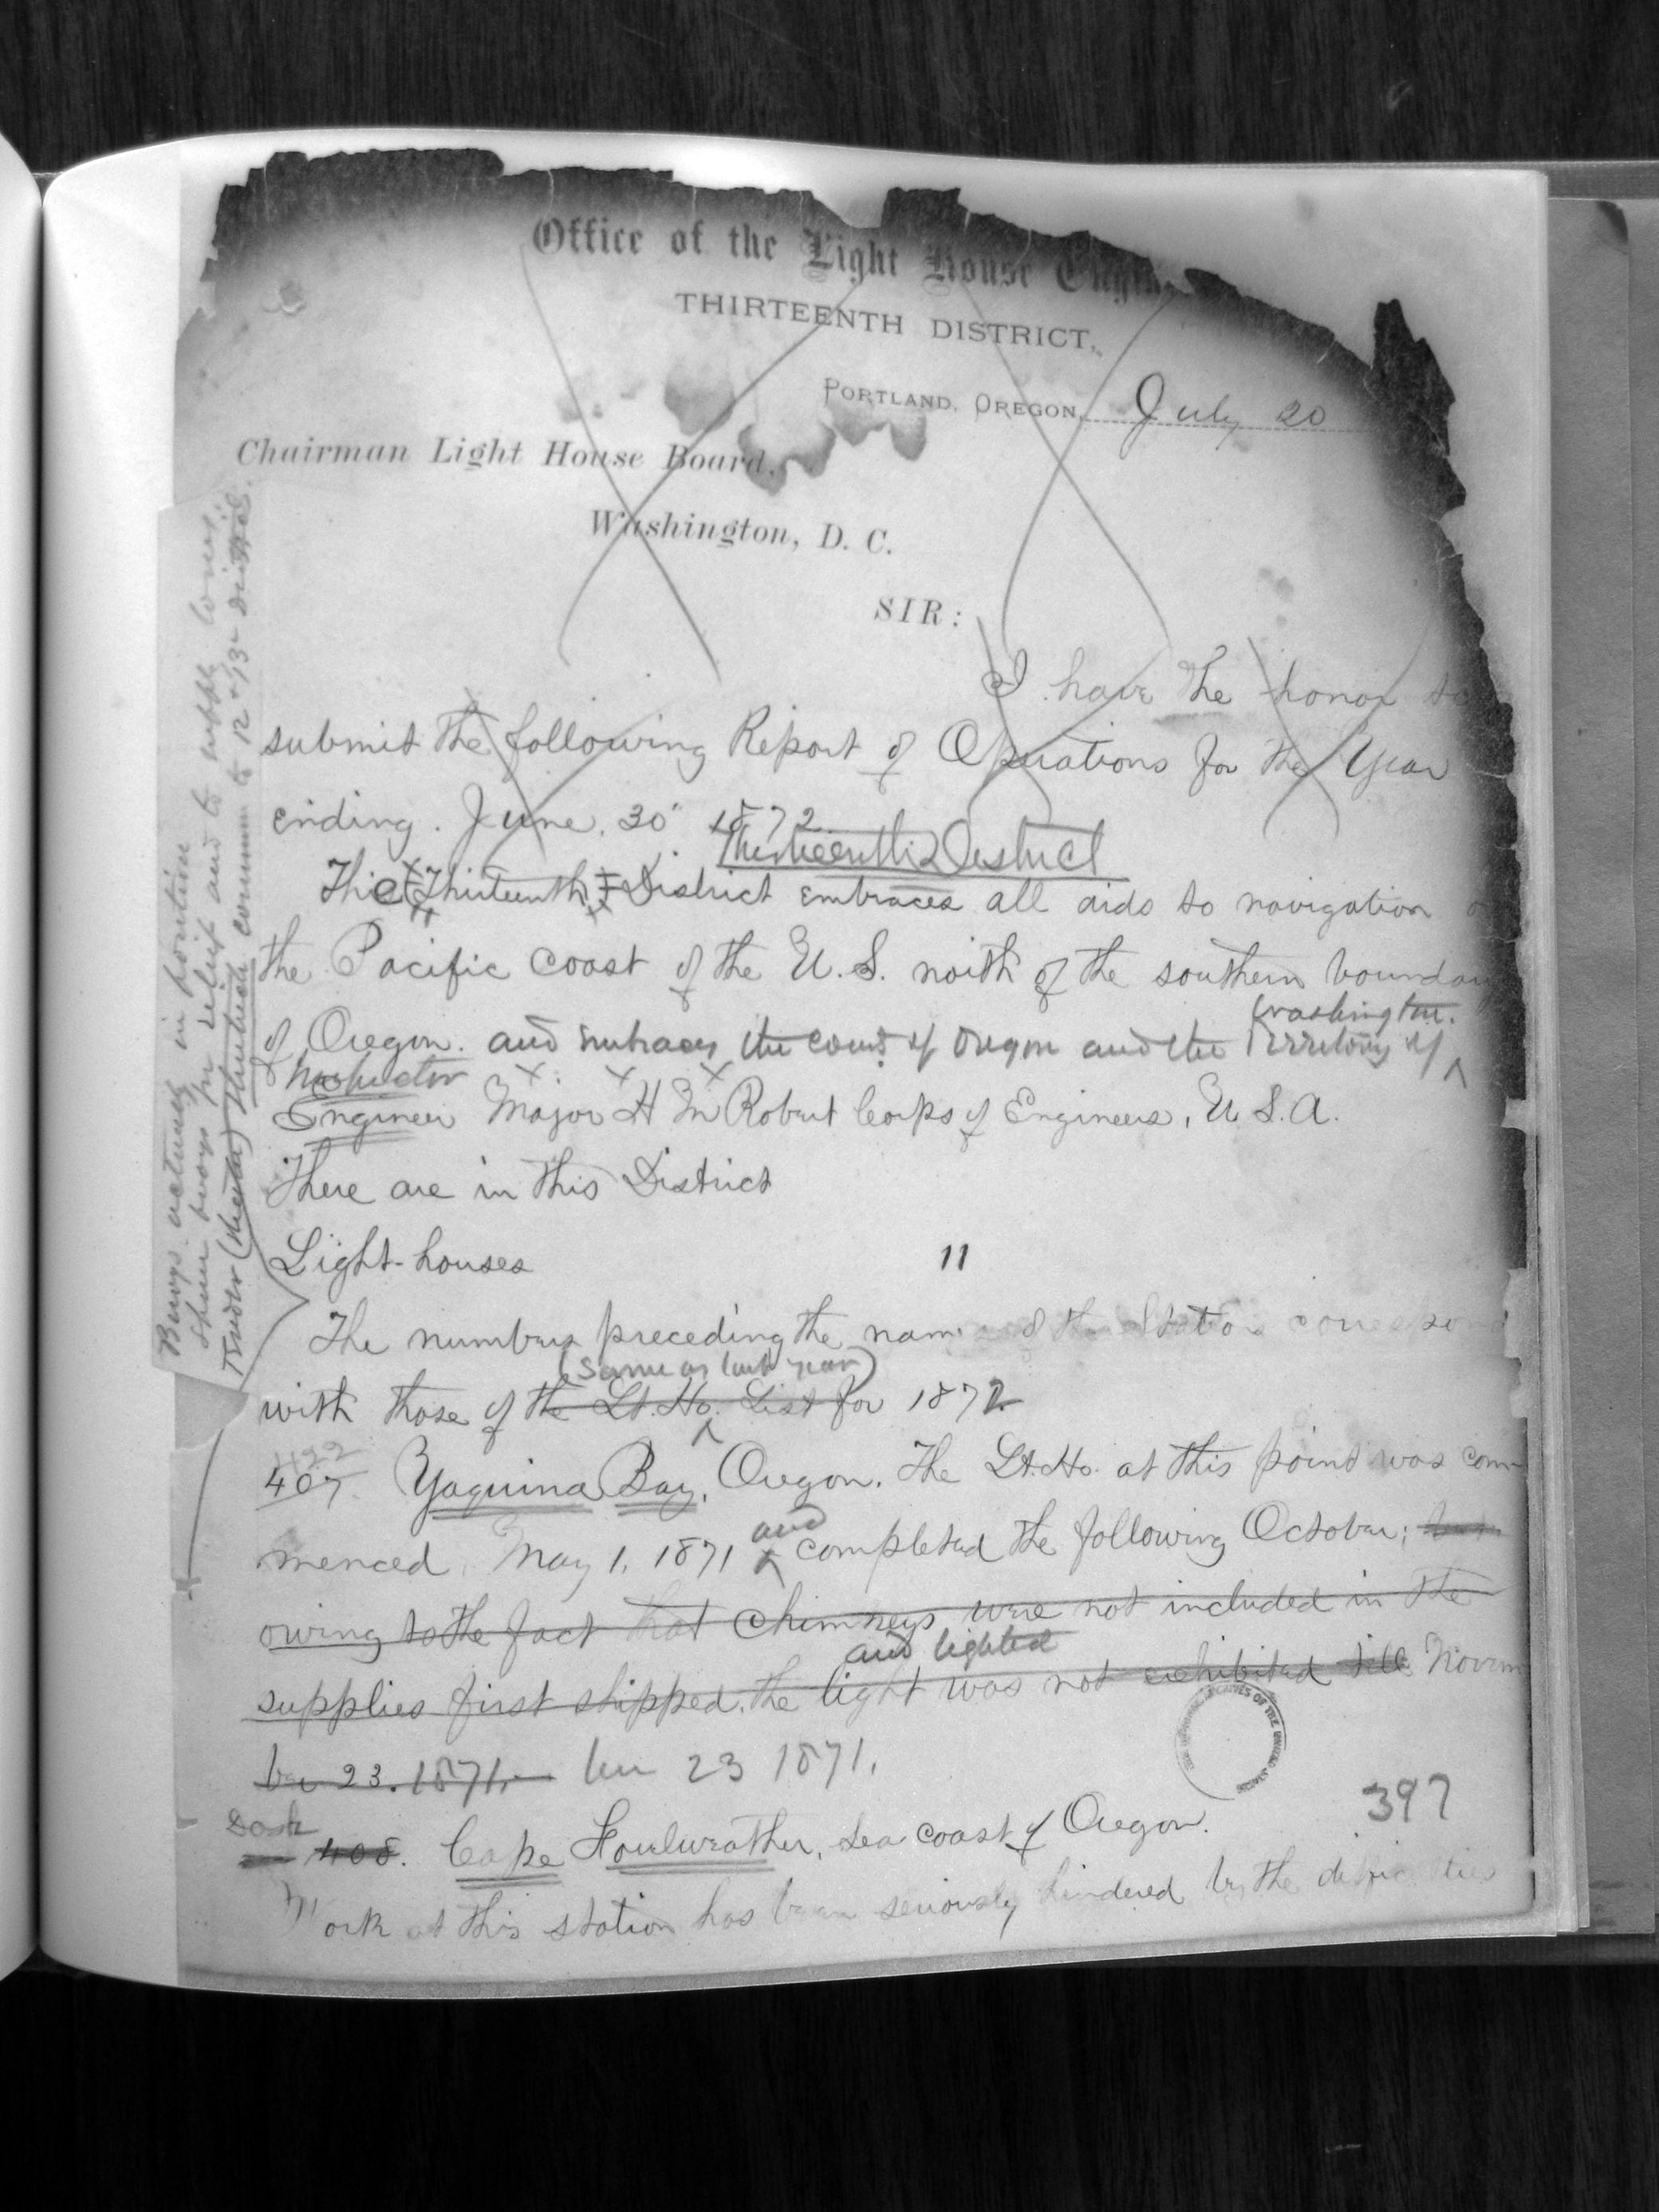 Office of the Light House
THIRTEENTH DISTRICT,
PORTLAND, OREGON, July 20
Chairman Light House Board,
Washington, D. C.
SIR:
I have the honor to
submit the following Report of Operations for the Year
ending June 30 1872
Thirteenth District
Thirteenth District embraces all aids to navigation
the Pacific coast of the U.S. north of the southern boundary
Washington.
of Oregon. and embraces the coast of Oregon and the Territory of
Inspector
Engineer Major H M Robert Corps of Engineers, U S.A.
There are in this District
Light-houses 11
The numbers preceding the name of the Stations correspond
(Same as last year)
with those of the Lt. Ho. List for 1872
422
407 Yaquina Bay, Oregon. The Lt. Ho. at this point was com-
and
menced May 1, 1871 completed the following October; but
owing to the fact that chimneys were not included in the
and lighted
supplies first shipped, the light was not exhibited till Novem
ber 23. 1871. ber 23 1871.
397
408. Cape Foulweather, sea coast of Oregon.
Work at this station has been seriously hindered by the difficulties
Buoys actually in position
Spare buoys for relief and to supply losses
Tender common to 12 & 13 Districts.